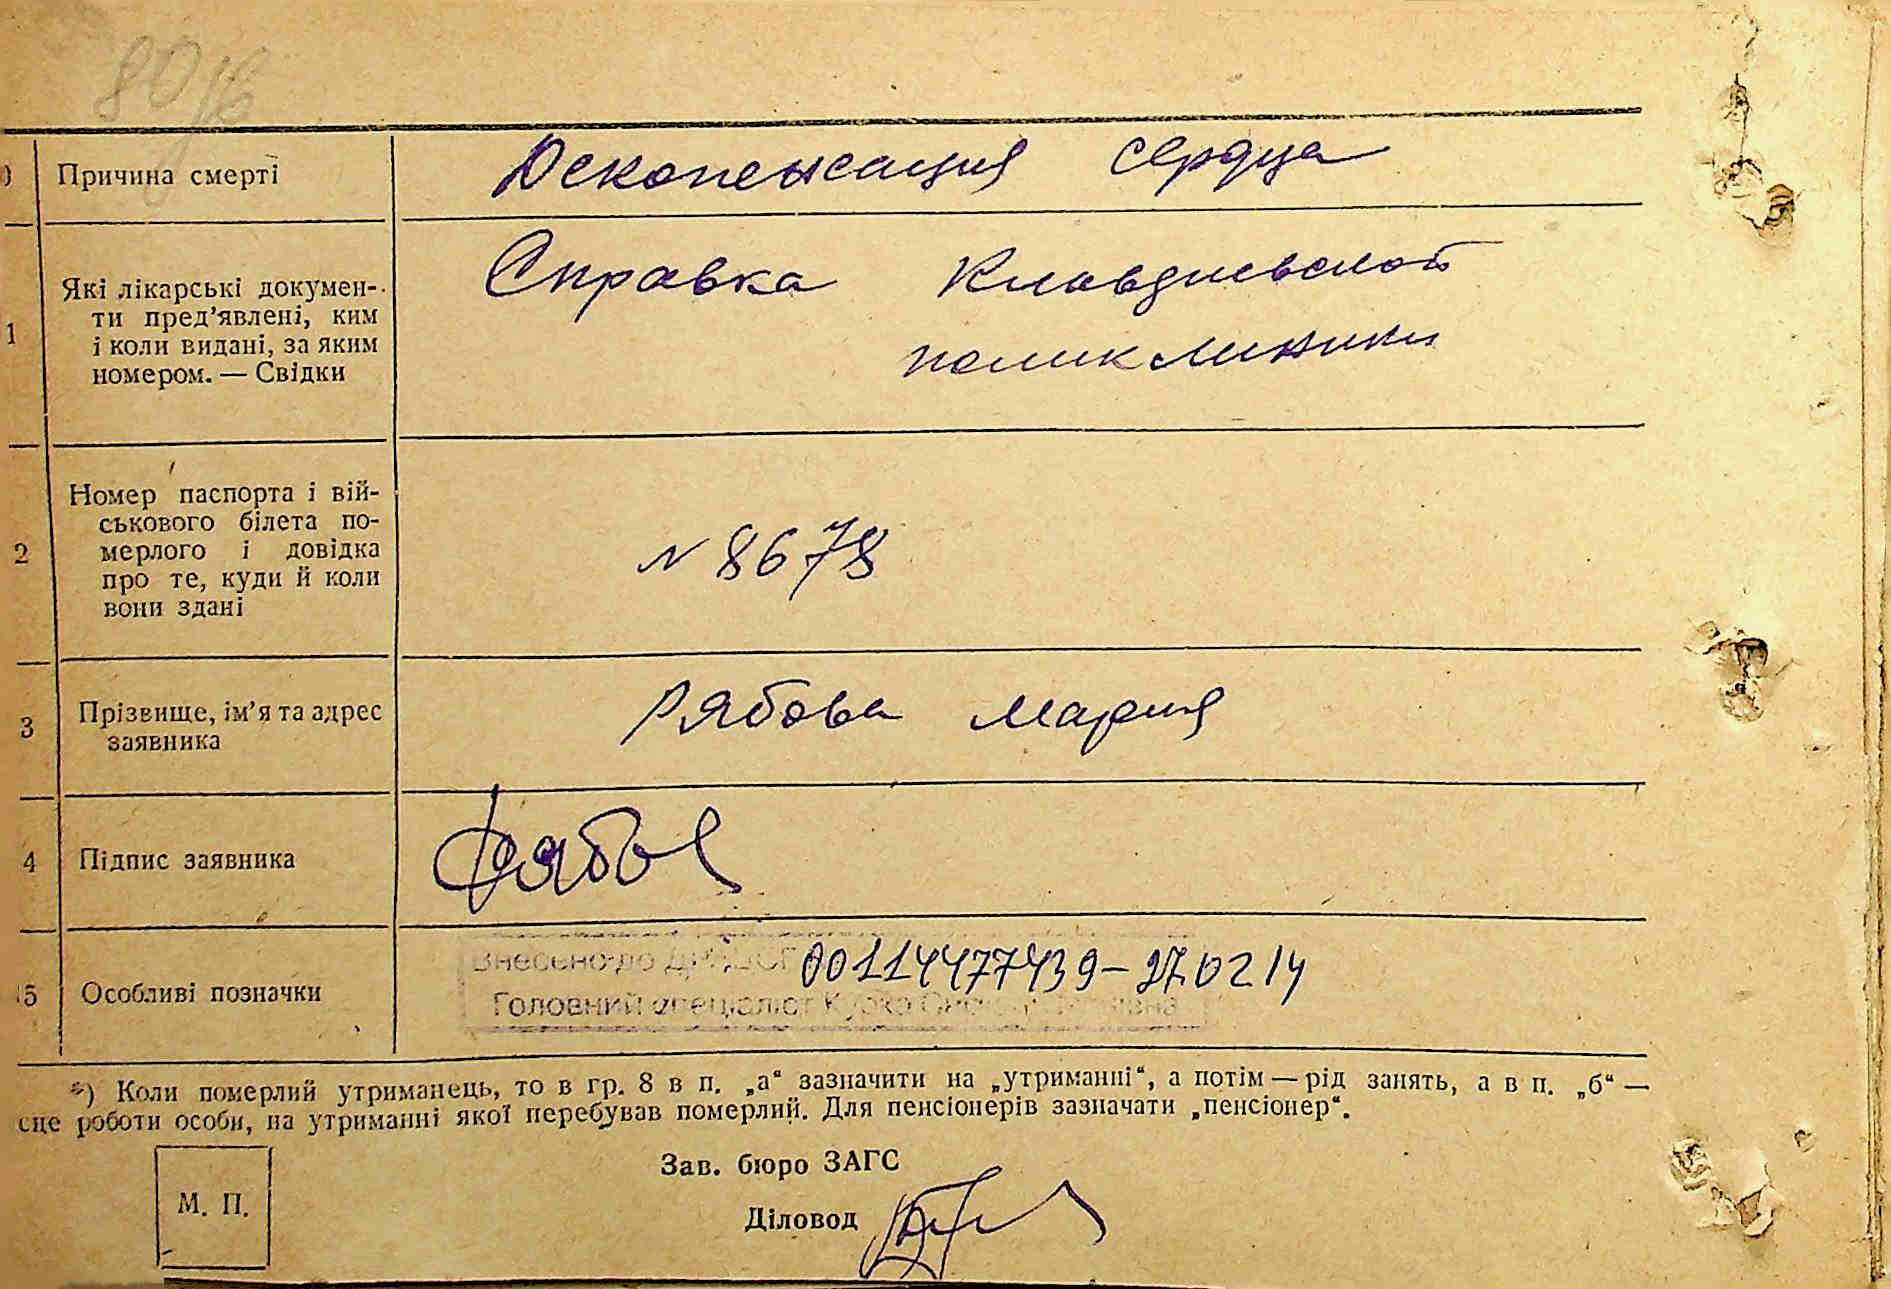 80
) Причина смерті
Декопенсация сердца
1 Які лікарські докумен-
ти пред'явлені, ким
і коли видані, за яким
номером. — Свідки
Справка Клавдиевской
поликлиники
2 Номер паспорта і вій-
ськового білета по-
мерлого і довідка
про те, куди й коли
вони здані
N 8678
3 Прізвище, ім'я та адрес
заявника
Рябова Мария
4 Підпис заявника
5 Особливі позначки
Внесено до 00114477439-27.02 14
Головний спеціаліст
*) Коли померлий утриманець, то в гр. 8 в п. „а“ зазначити на „утриманні“, а потім — рід занять, а в п. „б“ —
сце роботи особи, на утриманні якої перебував померлий. Для пенсіонерів зазначати „пенсіонер“.
Зав. бюро ЗАГС
М. П.
Діловод